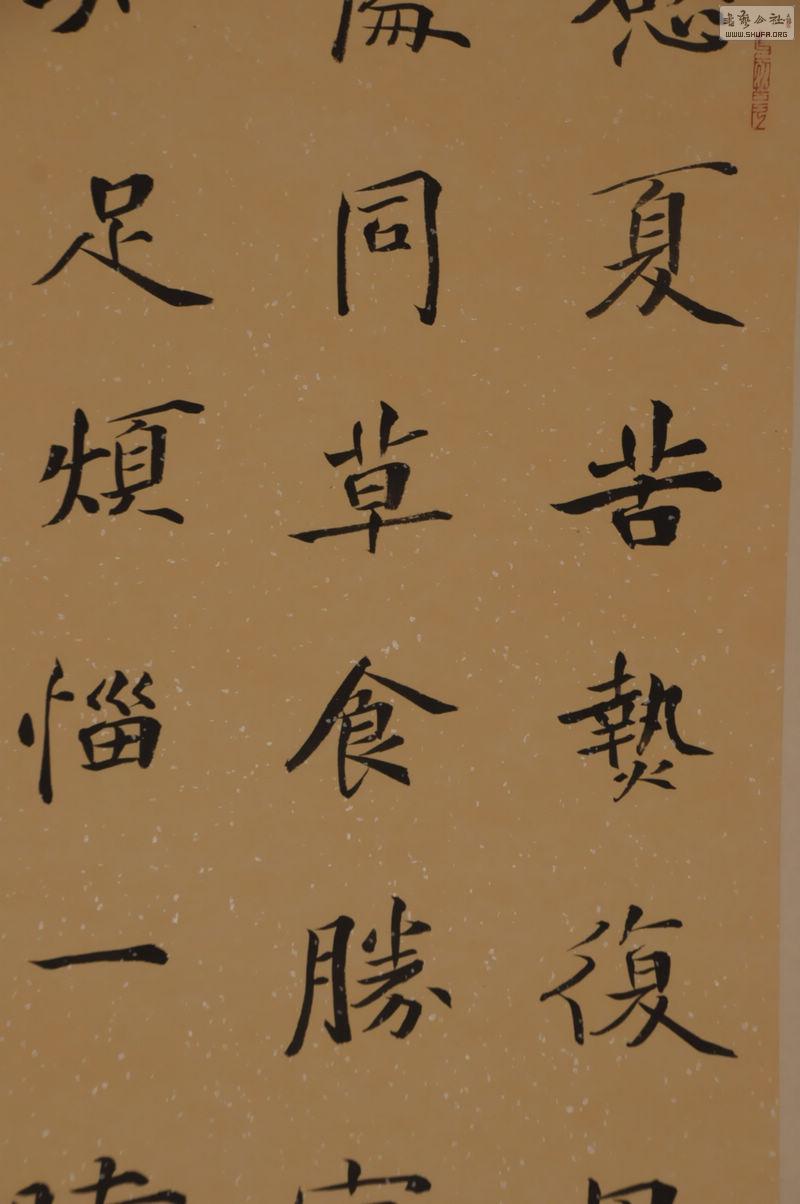 夏苦熱復
同草食勝
足煩惱一
書藝公社
WWW.SHUFA.ORG